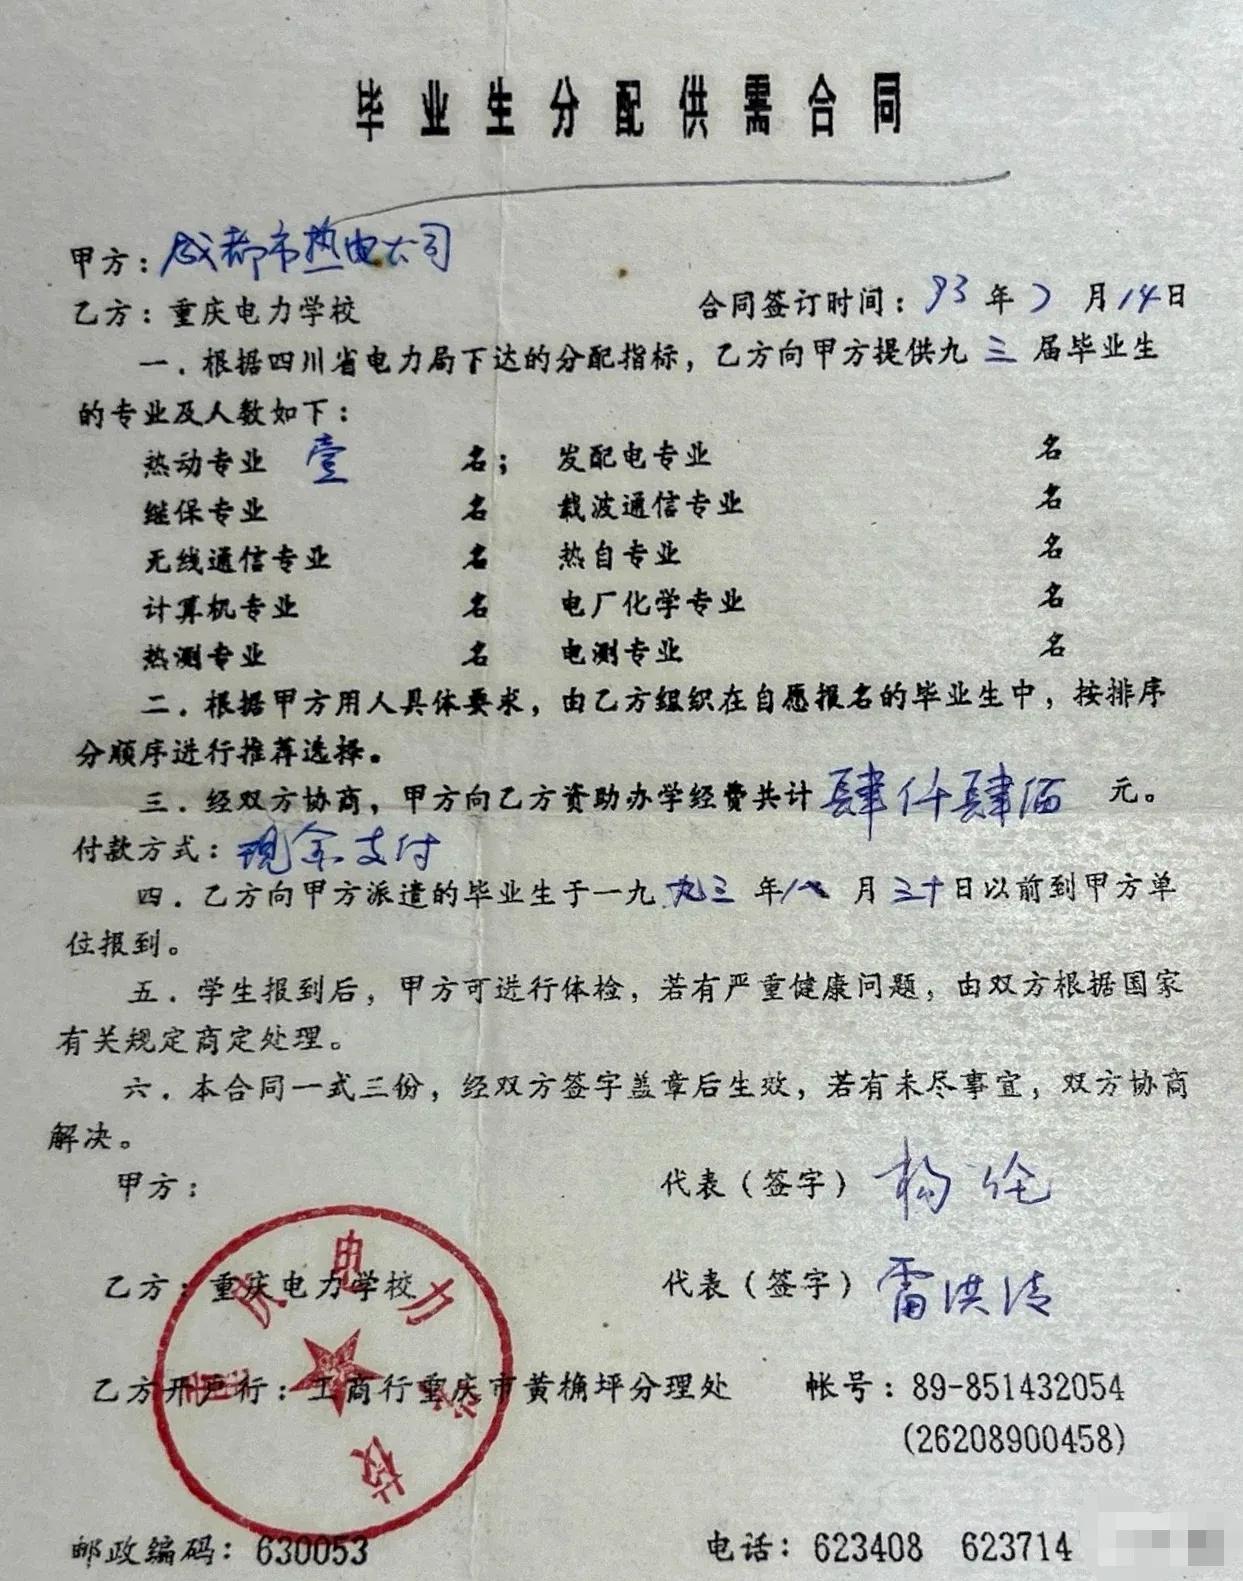 毕业生分配供需合同
甲方：成都市热电公司
乙方：重庆电力学校
合同签订时间：93年7月14日
一．根据四川省电力局下达的分配指标，乙方向甲方提供九三届毕业生
的专业及人数如下：
热动专业 壹 名； 发配电专业 名
继保专业 名 载波通信专业 名
无线通信专业 名 热自专业 名
计算机专业 名 电厂化学专业 名
热测专业 名 电测专业 名
二．根据甲方用人具体要求，由乙方组织在自愿报名的毕业生中，按排序
分顺序进行推荐选择。
三．经双方协商，甲方向乙方资助办学经费共计肆仟肆佰元。
付款方式：现金支付
四．乙方向甲方派遣的毕业生于一九九三年八月三十日以前到甲方单
位报到。
五．学生报到后，甲方可进行体检，若有严重健康问题，由双方根据国家
有关规定商定处理。
六．本合同一式三份，经双方签字盖章后生效，若有未尽事宜，双方协商
解决。
甲方： 代表（签字）杨伦
乙方：重庆电力学校 代表（签字）雷洪清
重庆电力学校
乙方开户行：工商行重庆市黄桷坪分理处 帐号：89-851432054
(26208900458)
邮政编码：630053 电话：623408 623714